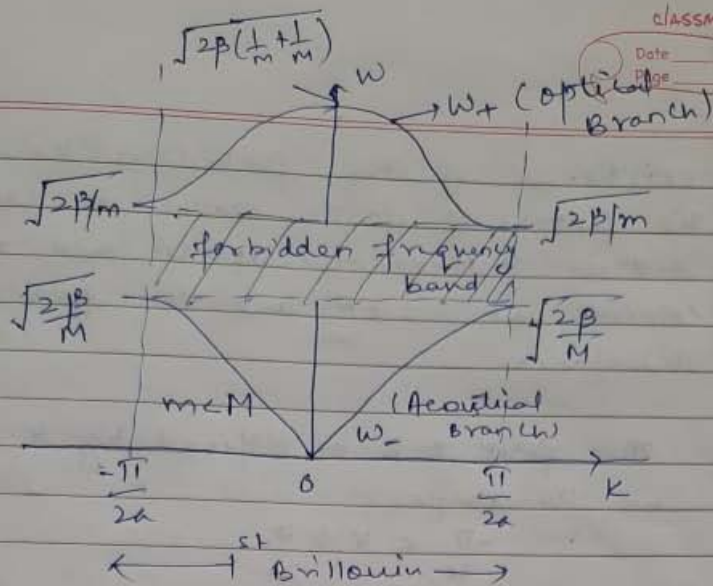 classm
Date
Page
√2β(1/m+1/M)
W
W+ (optical
Branch)
√2β/m
√2β/m
forbidden frequency
band
√2β/M
√2β/M
m<M
(Acoustical
Branch)
W-
-π/2a
0
π/2a
K
1st Brillouin